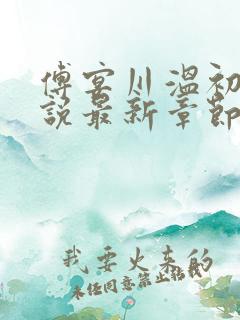 傅宴川温初
说最新章节
我要火来的
未经同意禁止转载